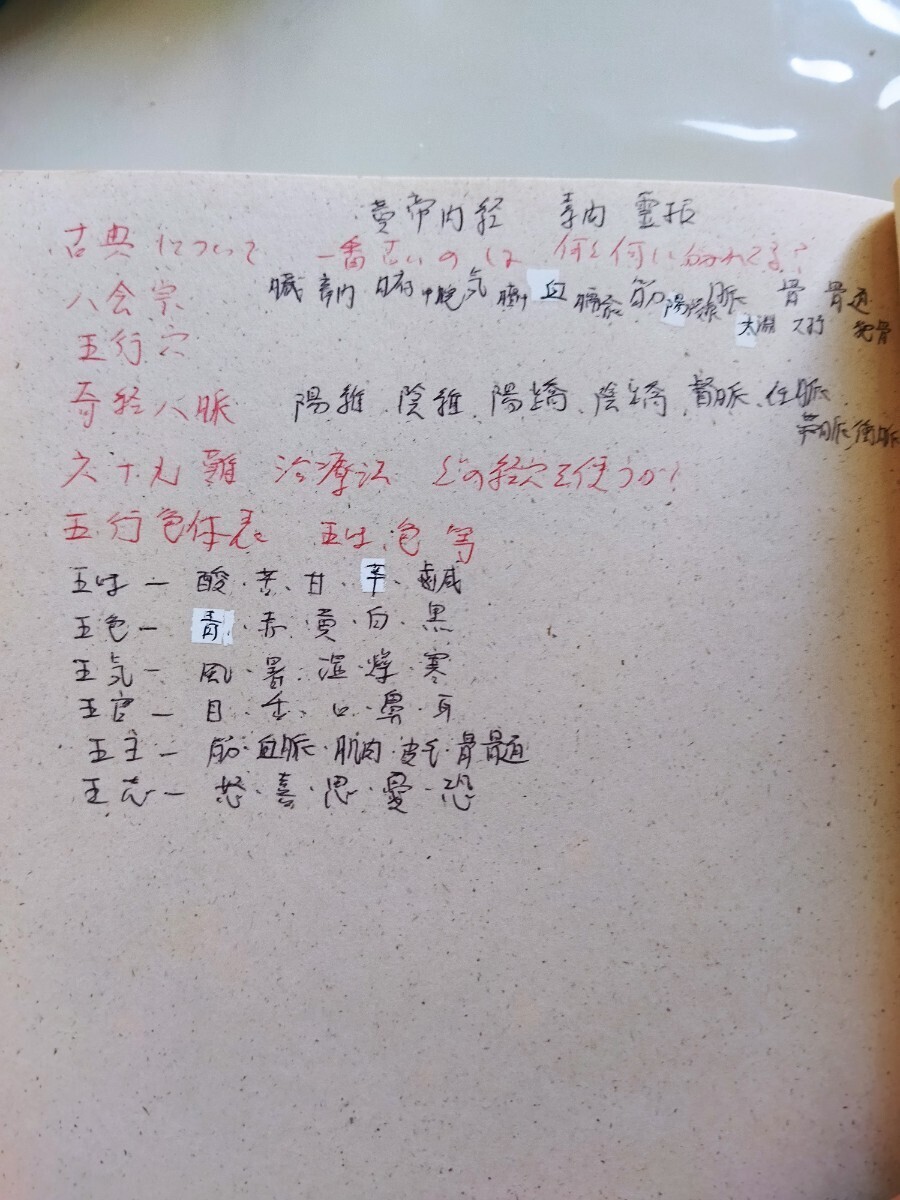 黄帝内経 素内 霊枢
古典について 一番古いのは 何と何に分かれてる?
八会穴 臓 章門 腑 中脘 気 膻中 血 膈兪 筋 陽陵泉 脈 骨 骨髄
太淵 大杼
五行穴
奇経八脈 陽維、陰維、陽蹻、陰蹻、督脈、任脈
帯脈、衝脈
六十九難 治療法 どの経穴を使うか?
五行色体表 五味、色 等
五味ー 酸・苦・甘・辛・鹹
五色ー 青・赤・黄・白・黒
五気ー 風・暑・湿・燥・寒
五官ー 目・舌・口・鼻・耳
五主ー 筋・血脈・肌肉・皮毛・骨髄
五志ー 怒・喜・思・憂・恐